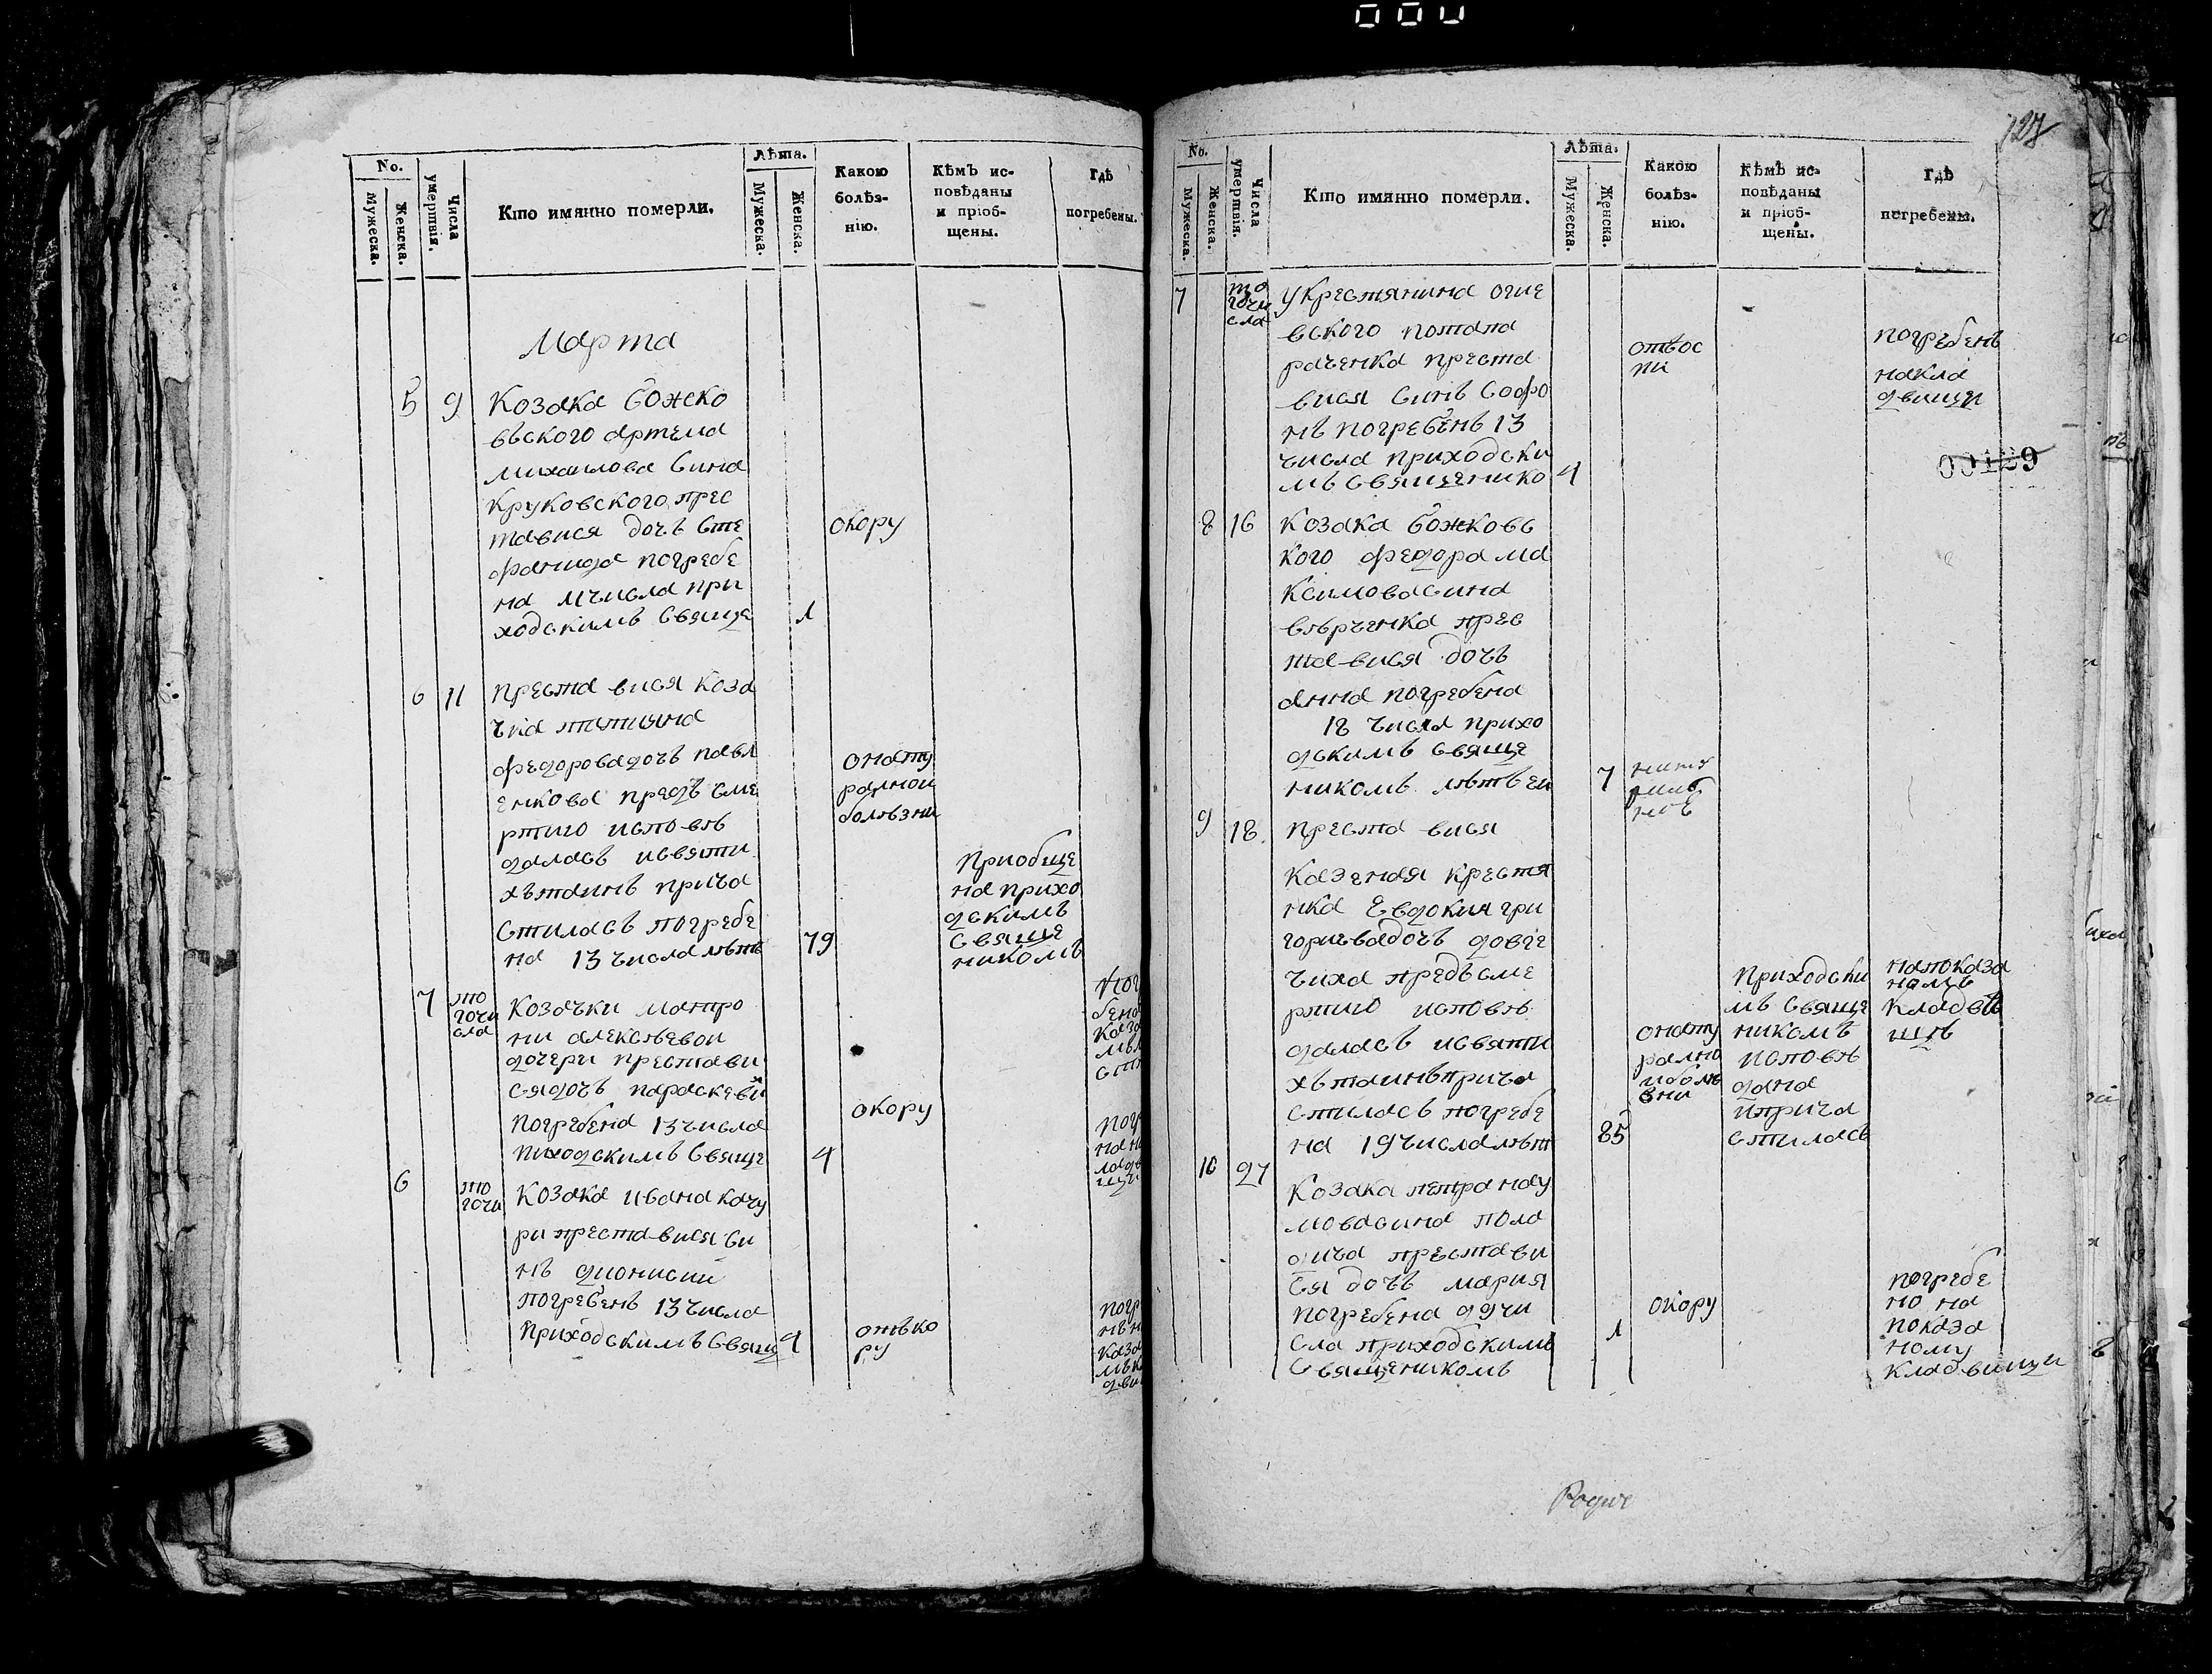 No.
Мужеска.
Женска.
Числа умертвія.
Кто имянно померли.
Лѣта.
Мужеска.
Женска.
Какою болѣз-
нію.
Кѣмъ ис-
повѣданы
и пріоб-
щены.
Гдѣ
погребены.
Марта
5 9 Козака божко
вского артема
михаилова сина
круковского прес
тавися дочъ сте
окору
фанида погребе
на числа при
ходскимъ свяще 1
6 11 Преста вися коза
чка татияна
федоровадочъ павл
онату
енкова предъ сме
ралной
ртию исповѣ
болѣзни
даласъ исвяти
хътаинъ прича
стиласъ погребе
на 13 числа лѣтъ 79
Приобще
на прихо
дскимъ
свяще
никомъ
7 то
гочи
сла
Козачки матро
ни алексѣевои
дочери престави
сядочъ параскеви
погребена 13 числа
окору
пиходскимъ свяще 4
6 то
гочи
козака ивана качу
ри преставися си
нъ дионисии
погребенъ 13 числа
приходскимъ свящ 4
отъко
ру
127
No.
Мужеска.
Женска.
Числа умертвія.
Кто имянно померли.
Лѣта.
Мужеска.
Женска.
Какою
болѣз-
нію.
Кѣмъ ис-
повѣданы
и пріоб-
щены.
Гдѣ
погребены.
7 то
гочи
сла
укрестянина огие
вского потапа
раченка преста
вися синъ софо
нъ погребенъ 13
числа приходски
мъ священико 4
отвос
пи
погребенъ
накла
двищи
00129
8 16 козака божковс
кого федора ма
ксимовасина
вѣрченка прес
тавися дочъ
анна погребена
18 числа прихо
дскимъ свяще
никомъ лѣтъ еи 7
9 18 преста вися
казеная крестя
нка Евдокия гри
горьевадочъ довге
чиха предъсме
ртию исповѣ
даласъ исвяти
хътаинъприча
стиласъ погребе
на 19 числа лѣт 85
онату
рално
иболѣ
зни
Приходски
мъ свяще
никомъ
исповѣ
дана
иприча
стиласъ
напоказа
номъ
кладви
щѣ
10 27 Козака петра нау
мовасина пола
дича престави
ся дочъ мария
погребена 29 чи
сла приходскимъ 1
священикомъ
окору
погребе
но на
показа
ному
кладвищи